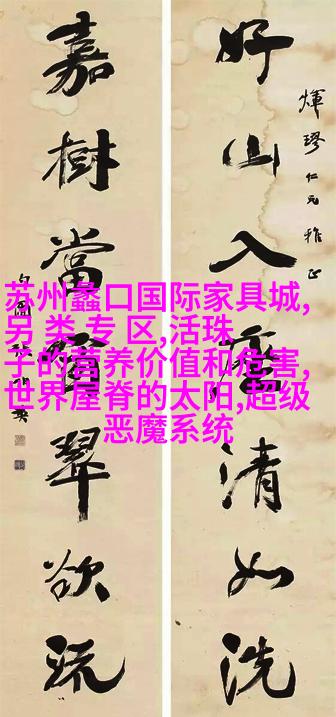 好山入清如洗
煇璆仁兄雅正
嘉樹當翠欲流
苏州蠡口国际家具城,
另 类 专 区,活珠
子的营养价值和危害,
世界屋脊的太阳,超级
恶魔系统